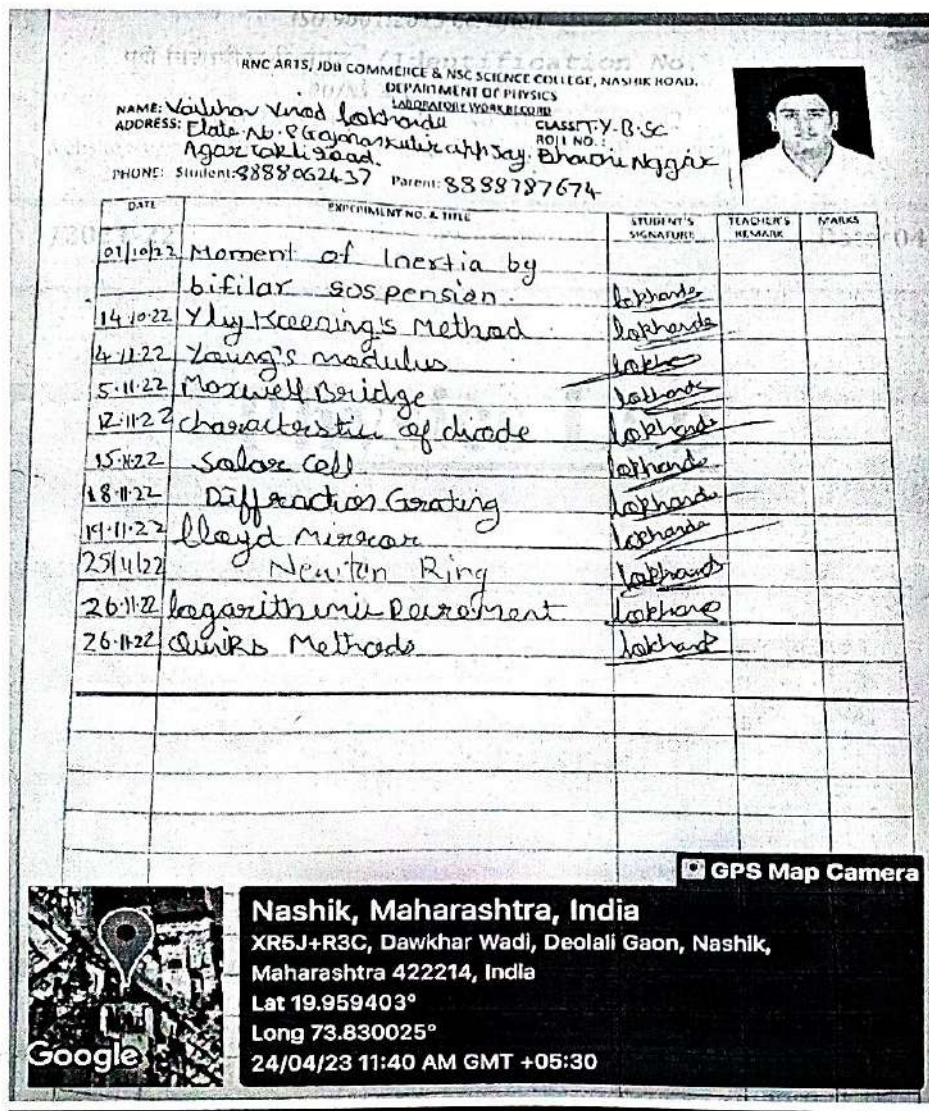 (Identification No.
RNC ARTS, JDB COMMERCE & NSC SCIENCE COLLEGE, NASHIK ROAD.
DEPARTMENT OF PHYSICS
LABORATORY WORK RECORD
NAME: Vaibhav Vinod Lokhande CLASS: T.Y.B.Sc
ADDRESS: Flate No. 8 Gajanan opp Jay Bhavani Naggar ROLL NO.:
Agar takli road.
PHONE: Student: 8888062437 Parent: 8888787674
DATE EXPERIMENT NO. & TITLE STUDENT'S SIGNATURE TEACHER'S REMARK MARKS
01/10/22 Moment of Inertia by
bifilar suspension. lokhande
14.10.22 Method lokhande
4.11.22 Young's modulus
5.11.22 Maxwell Bridge lokhande
12.11.22 characteristic of diode lokhande
15.11.22 Solar Cell lokhande
18.11.22 Diffraction Grating lokhande
19.11.22 lloyd Mirror lokhande
25/11/22 Newton Ring lokhande
26.11.22 logarithmic lokhande
26.11.22 Methode lokhande
GPS Map Camera
Nashik, Maharashtra, India
XR5J+R3C, Dawkhar Wadi, Deolali Gaon, Nashik,
Maharashtra 422214, India
Lat 19.959403°
Long 73.830025°
24/04/23 11:40 AM GMT +05:30
Google